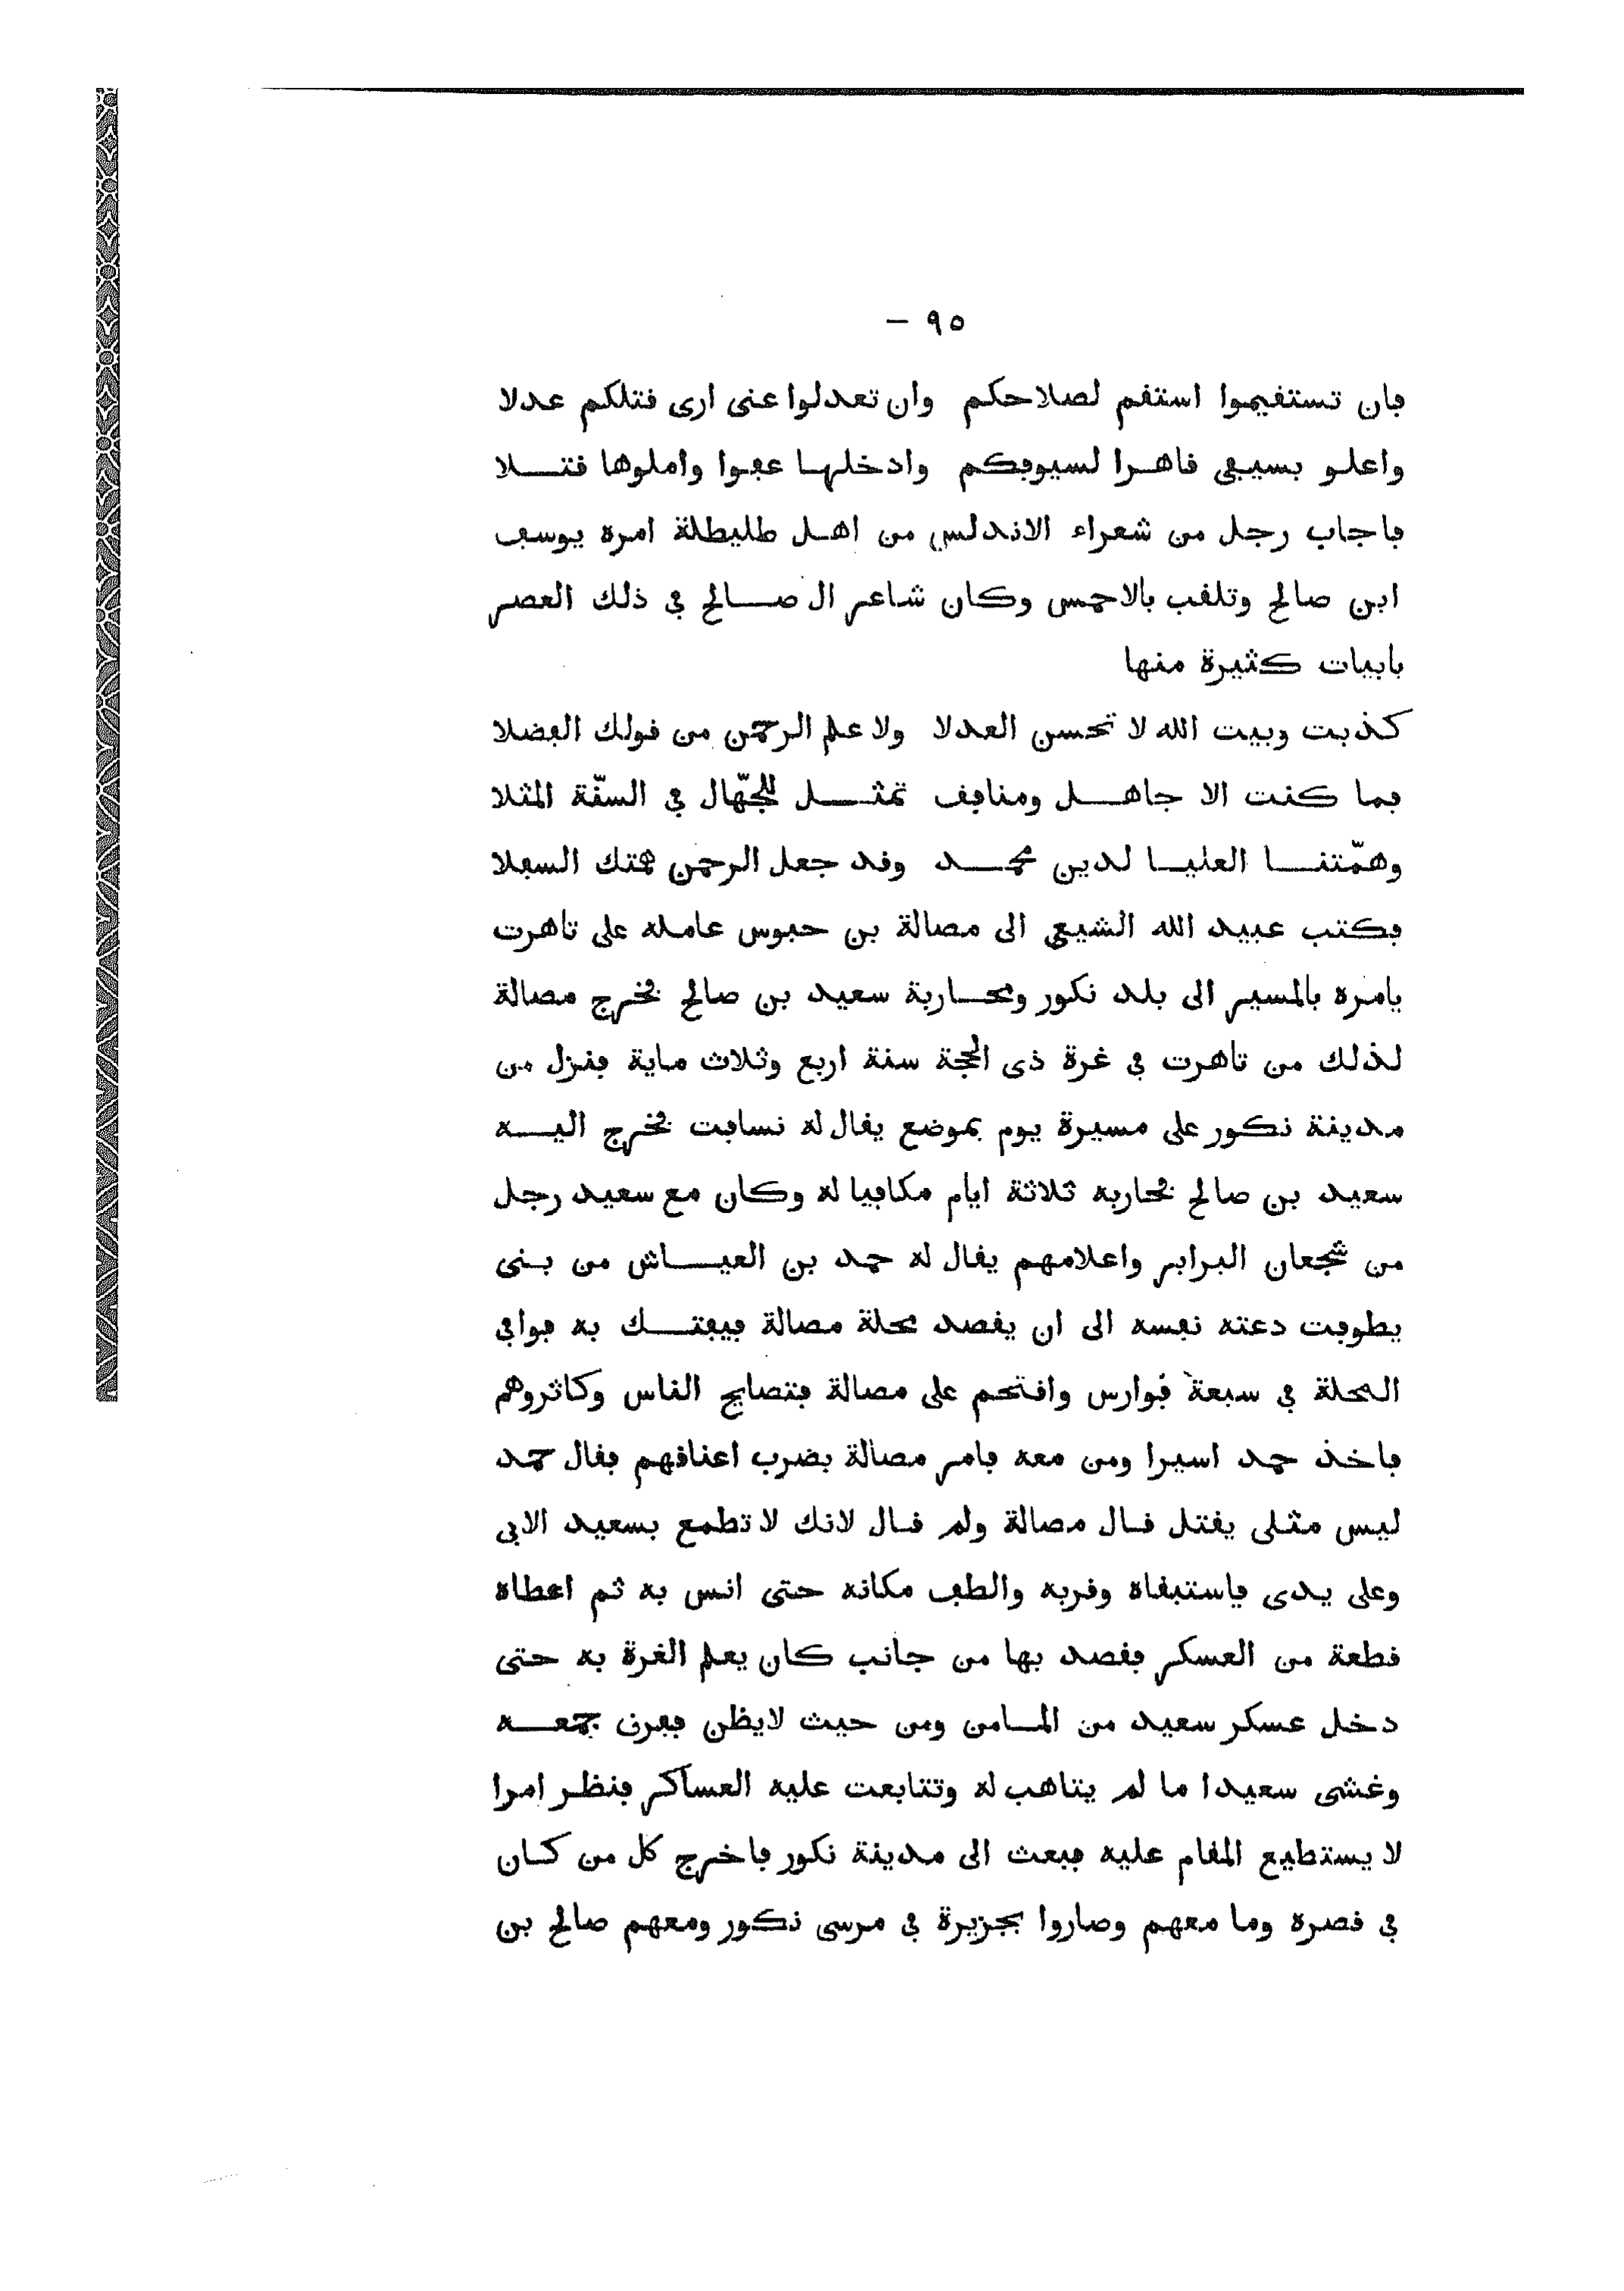 ٩٥ –
فان تستقيموا استقم لصلاحكم وان تعدلوا عنى ارى قتلكم عدلا
واعلو بسيفى قاهرا لسيوفكم وادخلها عفوا واملوها قتلا
فاجاب رجل من شعراء الاندلس من اهل طليطلة امره يوسف
ابن صالح وتلقب بالاحمس وكان شاعر ال صالح في ذلك العصر
بابيات كثيرة منها
كذبت وبيت الله لا تحسن العدلا ولا علم الرحمن من قولك الفضلا
فما كنت الا جاهل ومنافق تمثل للجهّال في السنّة المثلا
وهمّتنا العليا لدين محمد وقد جعل الرحمن همتك السفلا
فكتب عبيد الله الشيعي الى مصالة بن حبوس عامله على تاهرت
يامره بالمسير الى بلد نكور ومحاربة سعيد بن صالح فخرج مصالة
لذلك من تاهرت في غرة ذى الحجة سنة اربع وثلاث ماية فنزل من
مدينة نكور على مسيرة يوم بموضع يقال له نسافت فخرج اليه
سعيد بن صالح فحاربه ثلاثة ايام مكافيا له وكان مع سعيد رجل
من شجعان البرابر واعلامهم يقال له حمد بن العياش من بنى
يطوفت دعته نفسه الى ان يقصد محلة مصالة فيفتك به فوافى
المحلة في سبعة فوارس واقتحم على مصالة فتصايح الناس وكاثروهم
فاخذ حمد اسيرا ومن معه فامر مصالة بضرب اعناقهم فقال حمد
ليس مثلى يقتل قال مصالة ولم قال لانك لا تطمع بسعيد الا بى
وعلى يدى فاستبقاه وقربه والطف مكانه حتى انس به ثم اعطاه
قطعة من العسكر فقصد بها من جانب كان يعلم الغرة به حتى
دخل عسكر سعيد من المامن ومن حيث لايظن ففرق جمعه
وغشى سعيدا ما لم يتاهب له وتتابعت عليه العساكر فنظر امرا
لا يستطيع المقام عليه فبعث الى مدينة نكور فاخرج كل من كان
في قصره وما معهم وصاروا بجزيرة في مرسى نكور ومعهم صالح بن